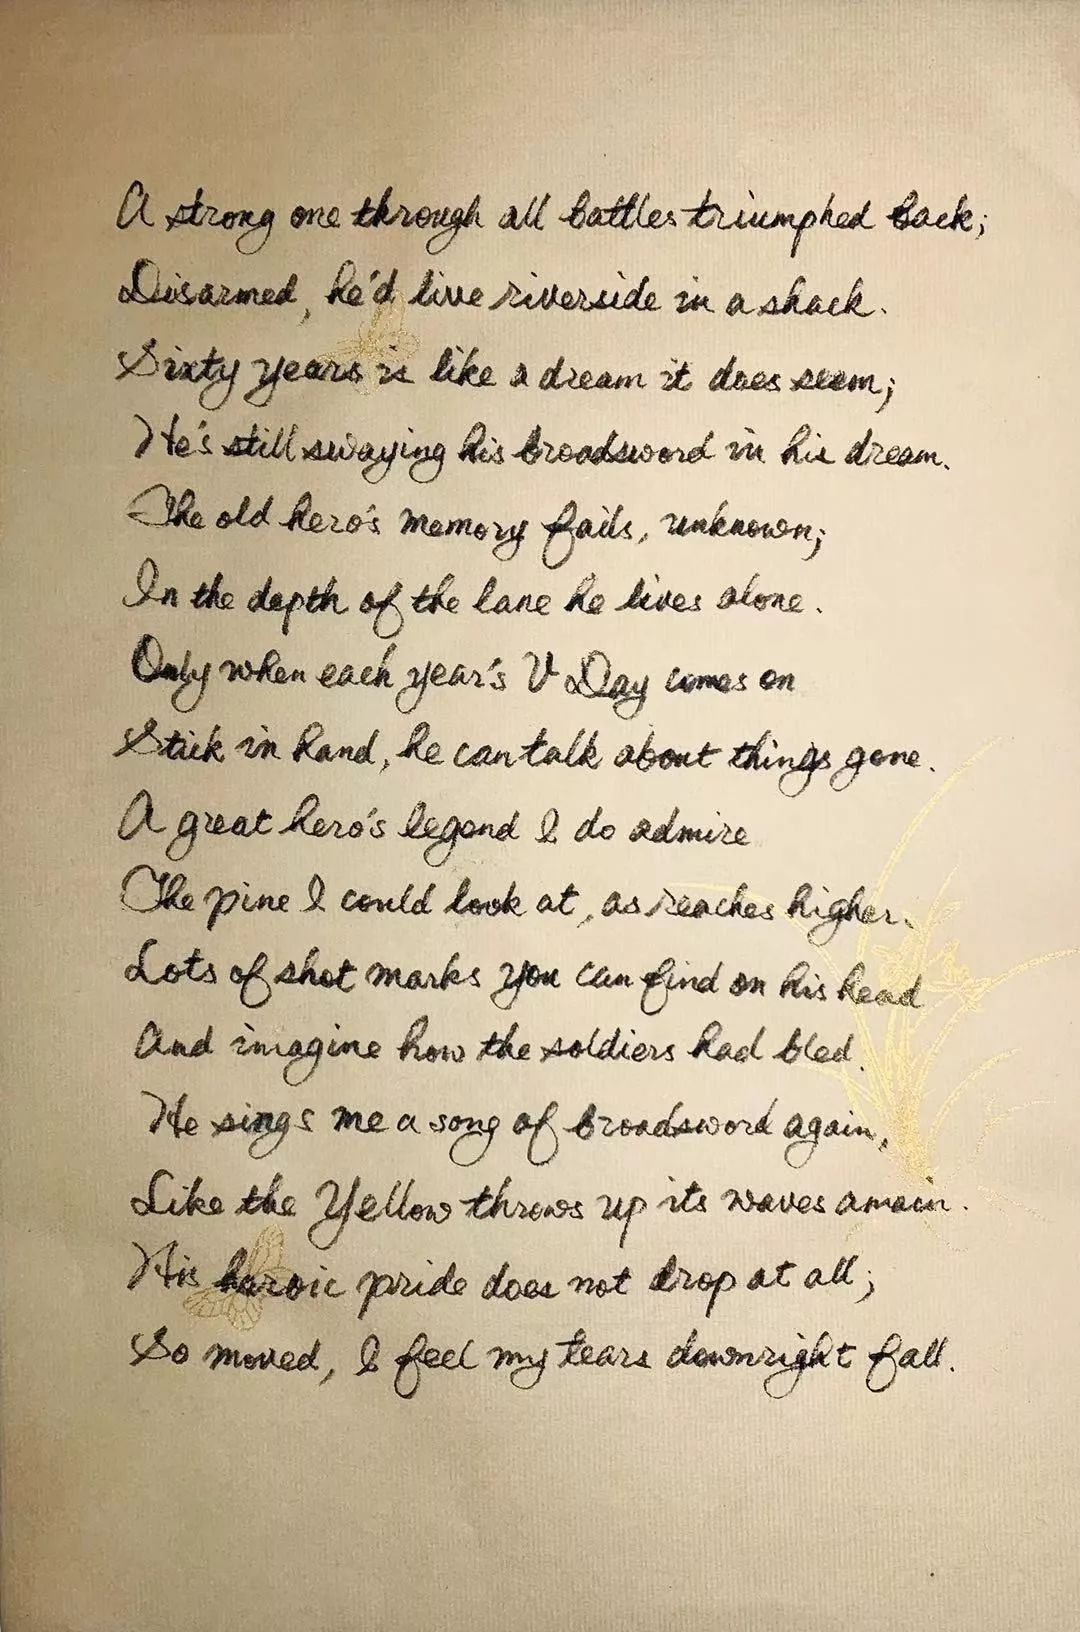 A strong one through all battles triumphed back;
Disarmed, he'd live riverside in a shack.
Sixty years is like a dream it does seem;
He's still swaying his broadsword in his dream.
The old hero's memory fails, unknown;
In the depth of the lane he lives alone.
Only when each year's V Day comes on
Stick in hand, he can talk about things gone.
A great hero's legend I do admire
The pine I could look at, as reaches higher.
Lots of shot marks you can find on his head
And imagine how the soldiers had bled.
He sings me a song of broadsword again,
Like the Yellow throws up its waves amain.
His heroic pride does not drop at all;
So moved, I feel my tears downright fall.